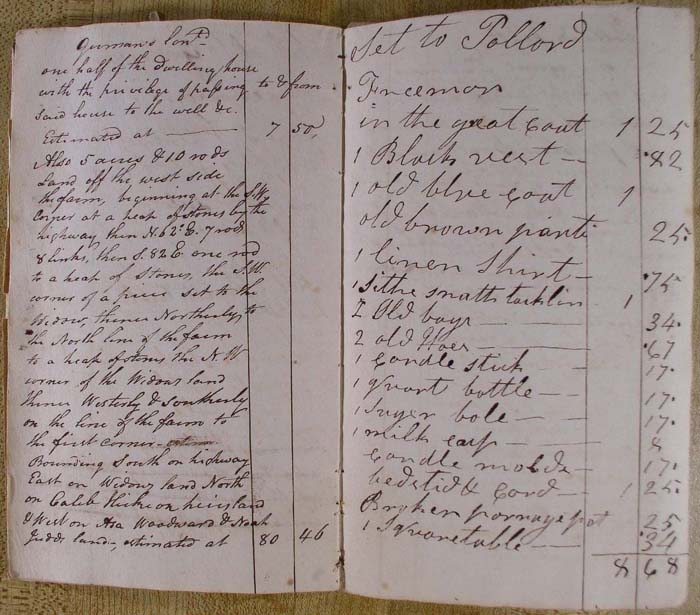 Gurman's Cont.d
one half of the dwelling house
with the privilege of passing to & from
said house to the well &c.
Estimated at — 7 50,
Also 5 acres & 10 rods
Land off the west side
the farm, beginning at the S.W.
Corner at a heap of stones by the
highway then N. 62° E. 7 rods
8 links, then S. 82 E. one rod
to a heap of stones, the S.W.
corner of a piece set to the
Widow, thence Northerly, to
the North line of the farm
to a heap of stones the N.W
corner of the Widows land
thence Westerly & Southerly
on the line of the farm to
the first corner —
Bounding South on highway
East on Widows land North
on Caleb land
& West on Asa Woodward & Noah
Judds land —, estimated at 80 46
Set to Pollord
Freemon
in the great Cout 1 25
1 Black vest — .82
1 old blue cout 1
old brown pants 25.
1 linen Shirt — .75
1 sithe snath tacklin 1
2 Old bags — 34.
2 old Hoes — .67
1 condle stick — 17.
1 Quart bottle — 17.
1 suger bole — 17.
1 milk cup — 8
condle molds — 17.
bedstid & cord — 1 25.
Broken porrage pot 25
1 Squaretable — .34
8 68